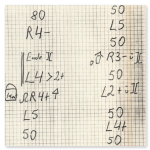 80
R4-
L4>2+
R4+4
L5
50
50
L5
50
R3-
50
L2+
50
L4+
50